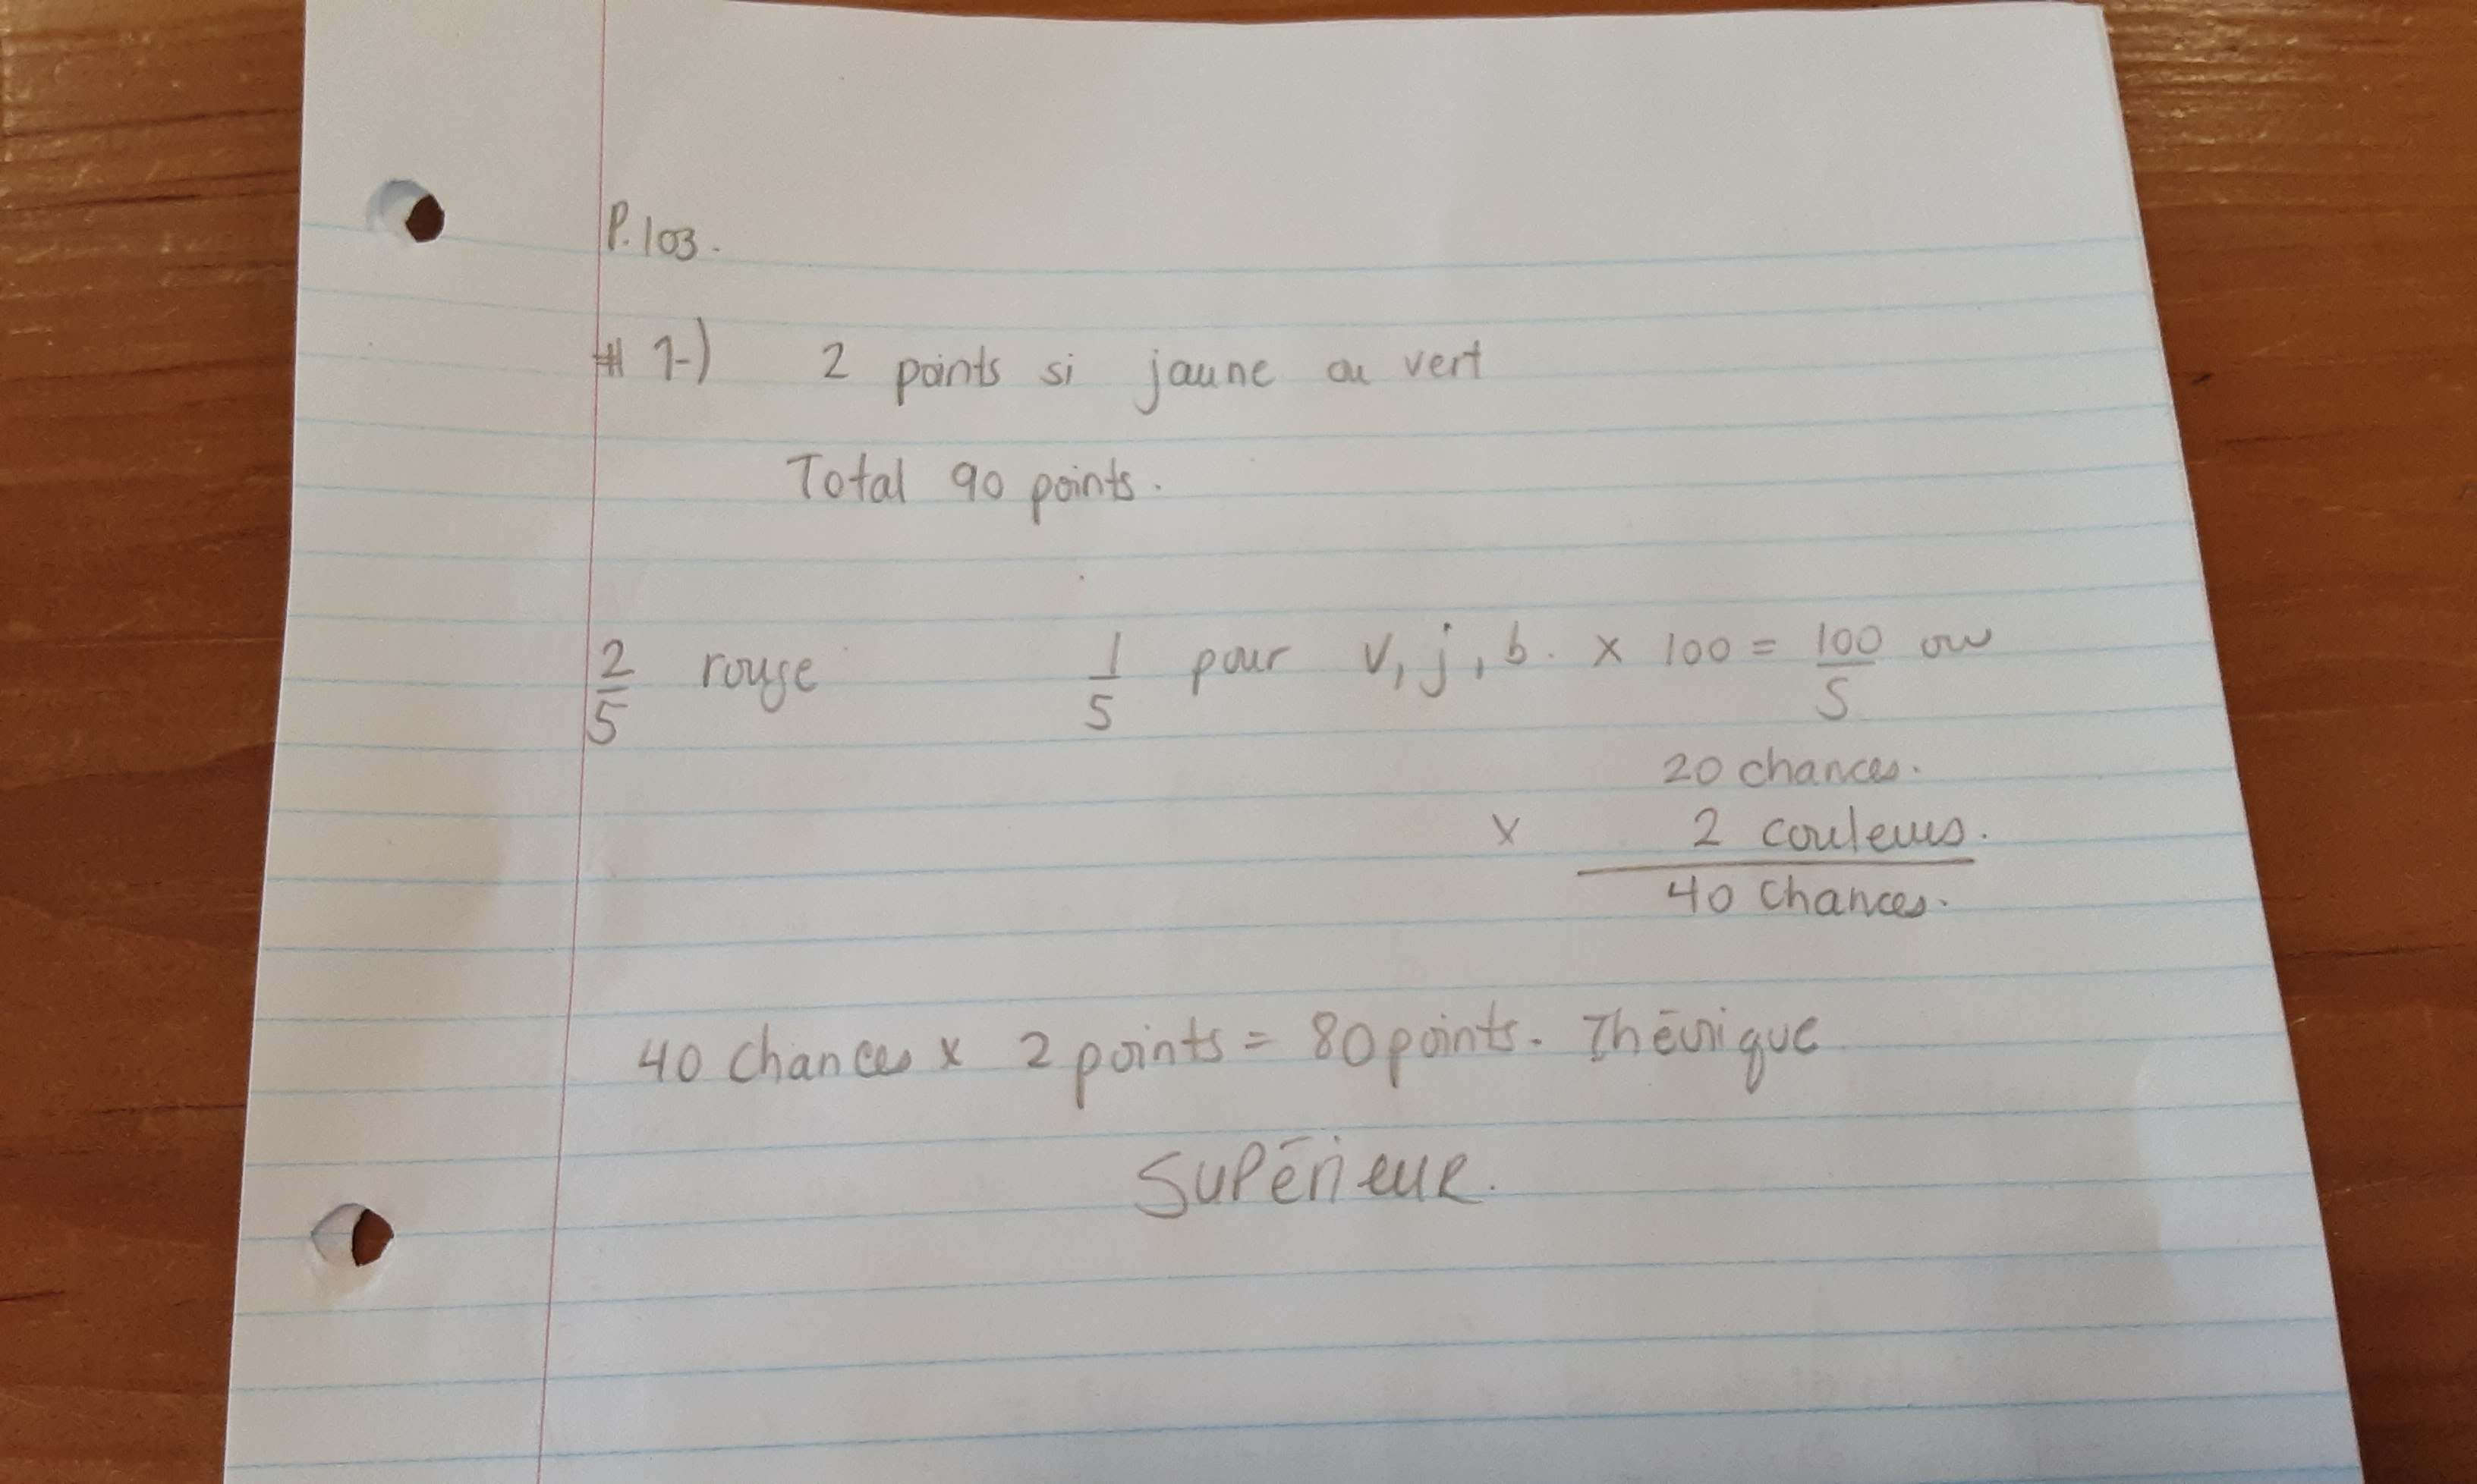 P. 103.
# 1-) 2 points si jaune ou vert
Total 90 points.
2/5 rouge 1/5 pour v, j, b. x 100 = 100/5 ou
20 chances.
x 2 couleurs.
40 chances.
40 chances x 2 points = 80 points. Théorique
Supérieur.